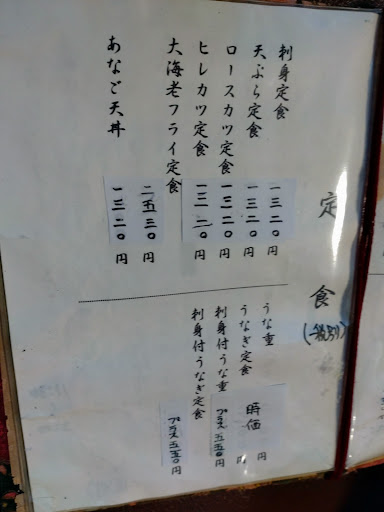 定食
(税別)
刺身定食 一三二〇円
天ぷら定食 一三二〇円
ロースカツ定食 一三二〇円
ヒレカツ定食 一三二〇円
大海老フライ定食 二五三〇円
あなご天丼 一三二〇円
うな重 時価 円
うなぎ定食 円
刺身付うな重 プラス五五〇円
刺身付うなぎ定食 プラス五五〇円